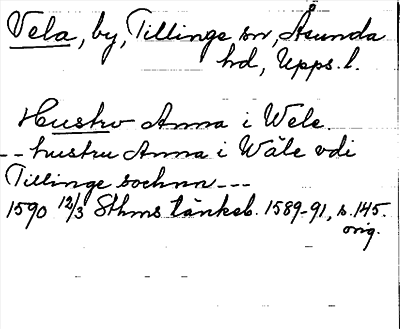 Vela, by, Tillinge sn, Åsunda
hd, Upps. l.
Hustrv Anna i Wele
-- hustru Anna i Wäle vdi
Tillinge sochnn ---
1590 12/3 Sthms tänkeb. 1589-91, s. 145.
orig.